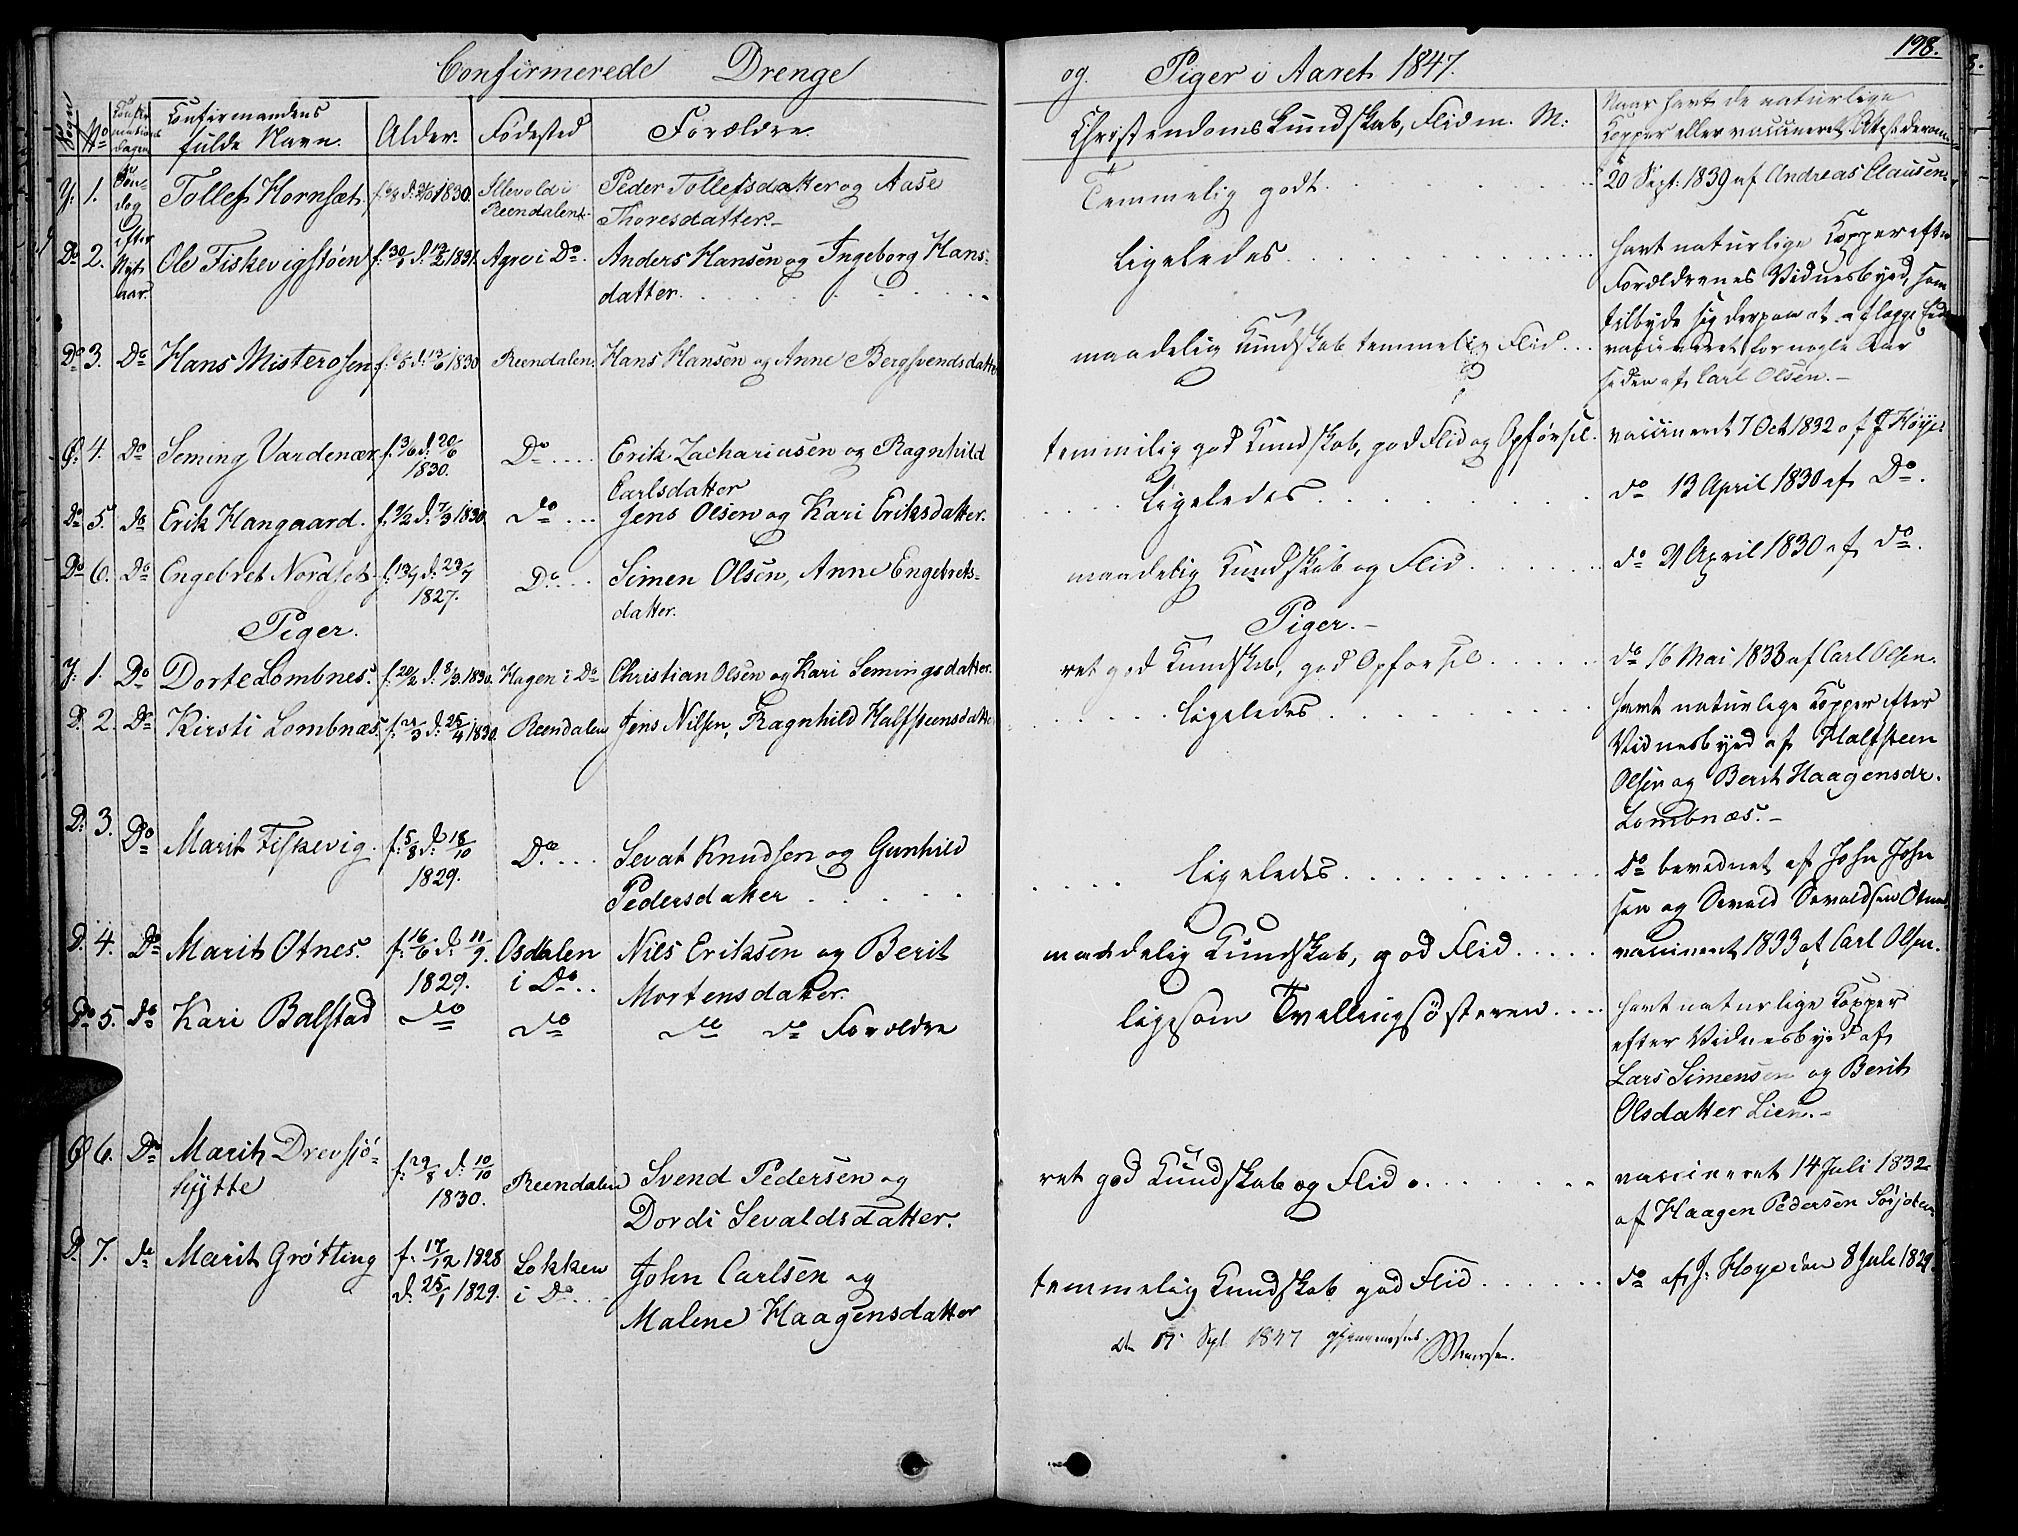 Confirmerede Drenge og Piger i Aaret 1847. 198.
Sogn No Confirmations Dagen Confirmandens fulde Navn. Alder. Fødested Forældre. Christendoms Kundskab, Flid m. M: Naar havt de naturlige
Kopper eller vaccineret
Y: 1. Søndag efter Nytaar Tollef Hornset 1830. Illevold i Reendalen Peder Tollefsdatter og Aase
Thoresdatter.- Temmelig godt 20 Sept: 1839 af Andreas Clausen
Do 2. Ole Fiskevigstøen f. 30/1 d. 13/2 1831. Agre i Do. Anders Hansen og Ingeborg Hans-
datter. ligeledes havt naturlige Kopper efter
Forældrenes Vidnesbyrd, som
tilbyde sig derpaa at aflægge Eed
Do 3. Do Hans Misterosen 1830 Reendalen. Hans Hansen og Anne Bergsvendsdatter maadelig Kundskab temmelig Flid vaccineret for nogle Aar
siden af Carl Olsen.-
Ø: 4. Do Seming Vardenær f. 3/6 d. 20/6
1830. Do Erik Zachariasen og Ragnhild
Carlsdatter temmelig god Kundskab, god Flid og Opførsel. vaccineret 7 Oct 1832 af J Høye
Do 5. do Erik Hangaard. f. 9/2 d. 7/3 1830. do Jens Olsen og Kari Eriksdatter. ligeledes do 13 April 1830 af Do.
Do 6. Do Engebret Nordset f. 13/7 d. 23/7
1827. Do Simen Olsen, Anne Engebrets-
datter. maadelig Kundskab og Flid do 21 April 1830 af do.
Piger. Piger.-
Y: 1. Do Dorte Lombnes. f. 20/2 d. 8/3 1830. Hagen i Do Christian Olsen og Kari Semingsdatter. ret god Kundskab, god Opførsel do 16 Mai 1833 af Carl Olsen.
D. 2. Do Kirsti Lombnæs. f. 24/3 d. 25/4 1830. Reendalen Jens Nilsen, Ragnhild Halfsteensdatter ligeledes havt naturlige Kopper efter
Vidnesbyrd af Halfsteen
Olsen og Berit Haagensdr.
Lombnæs.-
D. 3. Do Marit Fiskevig. f. 5/8 d. 18/10
1829. Do. Sevat Knudsen og Gunhild
Pedersdatter ligeledes do bevidnet af John John
sen og Sevald Sevaldsen
D. 4. Do Marit Otnes. f. 16/6 d. 11/9.
1829. Osdalen
i Do. Nils Eriksen og Berit
Mortensdatter. maadelig Kundskab, god Flid vaccineret 1833 af Carl Olsen.
Do 5. do Kari Balstad do do do do Forældre ligesom Tvillingsøsteren havt naturlige Kopper
efter Vidnesbyrd af
Lars Simensen og Berit
Olsdatter Lien.-
Ø 6. Do Marit Drevsjø-
hytte f. 29/8 d. 10/10
1830. Reendalen Svend Pedersen og
Dordi Sevaldsdatter. ret god Kundskab og Flid vaccineret 14 Juli 1832
af Haagen Pedersen
D. 7. do Marit Grøtting f. 17/12 1828
d. 25/1 1829. Løkken
i Do. John Carlsen og
Malene Haagensdatter temmelig Kundskab god Flid do af J: Høye den 8 Juli 1829.
Dn 17 Sept 1847 gjennemseet